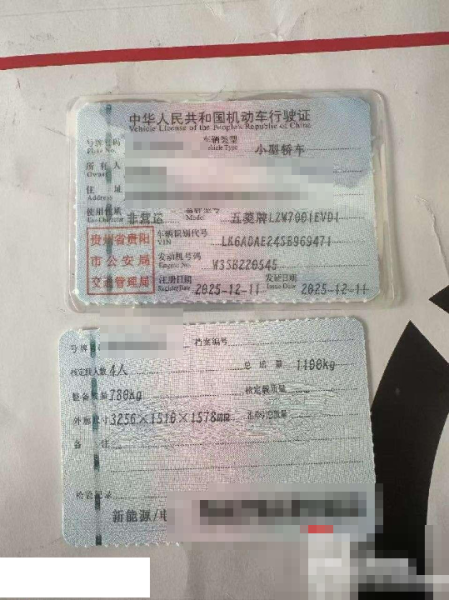 中华人民共和国机动车行驶证
Vehicle License of the People's Republic of China
号牌号码
车辆类型
小型轿车
所有人
住 址
使用性质
非营运
五菱牌LZW7001EVD1
贵州省贵阳
市公安局
交通管理局
车辆识别代号
VIN
LK6ADAE24SB969471
发动机号码
Engine No.
W3SB220545
注册日期
Register Date
2025-12-11
发证日期
Issue Date
2025-12-11
档案编号
核定载人数
4人
总 质 量
1100kg
整备质量
780kg
核定载质量
外廓尺寸
3256×1510×1578mm
备 注
检验记录
新能源/电